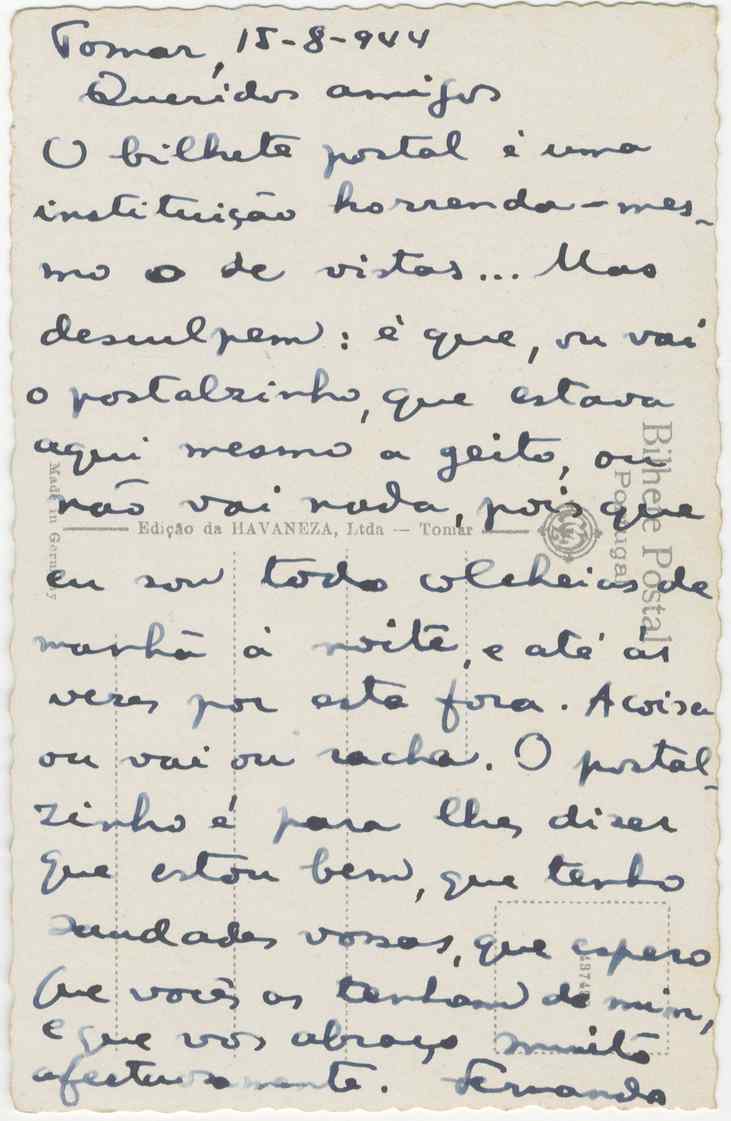 Tomar, 15-8-944
Queridos amigos
O bilhete postal é uma
instituição horrenda - mes-
mo o de vistas... Mas
desculpem: é que, ou vai
o postalzinho, que estava
aqui mesmo a geito, ou
não vai nada, pois que
eu sou todo colcheias de
manhã à noite, e até às
vezes por esta fora. A coisa
ou vai ou racha. O postal-
zinho é para lhes dizer
que estou bem, que tenho
saudades vossas, que espero
que vocês as tenham de mim,
e que vos abraço muito
afectuosamente. Fernando
Edição da HAVANEZA, Ltda — Tomar
Bilhete Postal
Portugal
Made in Germany